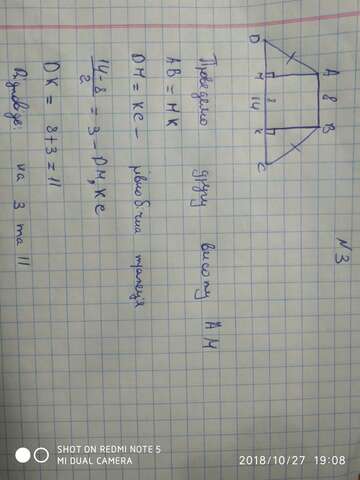 N3
A 8 B
D M 8 K C
14
Проведемо другу висоту АМ
AB = MK
DM = KC - рівнобічна трапеція
14-8
2
= 3 - DM, KC
DK = 8+3 = 11
Відповідь: на 3 та 11
SHOT ON REDMI NOTE 5
MI DUAL CAMERA
2018/10/27 19:08